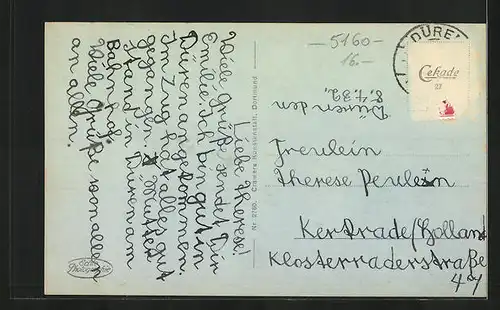 Liebe Therese!
Viele Grüße sendet Dir
Emilie. Ich bin gut in
Düren angekommen.
Im Zug hat alles gut
gegangen. Mutter
stand in Düren am
Bahnhof.
Viele Grüße von allen
an allen.
Echte
Photographie
Nr. 2760. Cramers Kunstanstalt, Dortmund
—5160—
16.—
DÜRE
Cekade
Düren den
8.4.32.
Freulein
Therese
Kerkrade/Holland
Klosterraderstraße